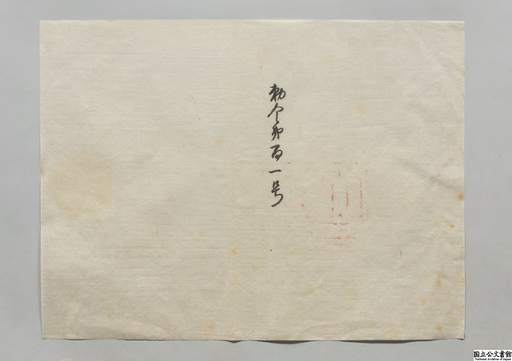 勅令第百一号
国立公文書館
National Archives of Japan